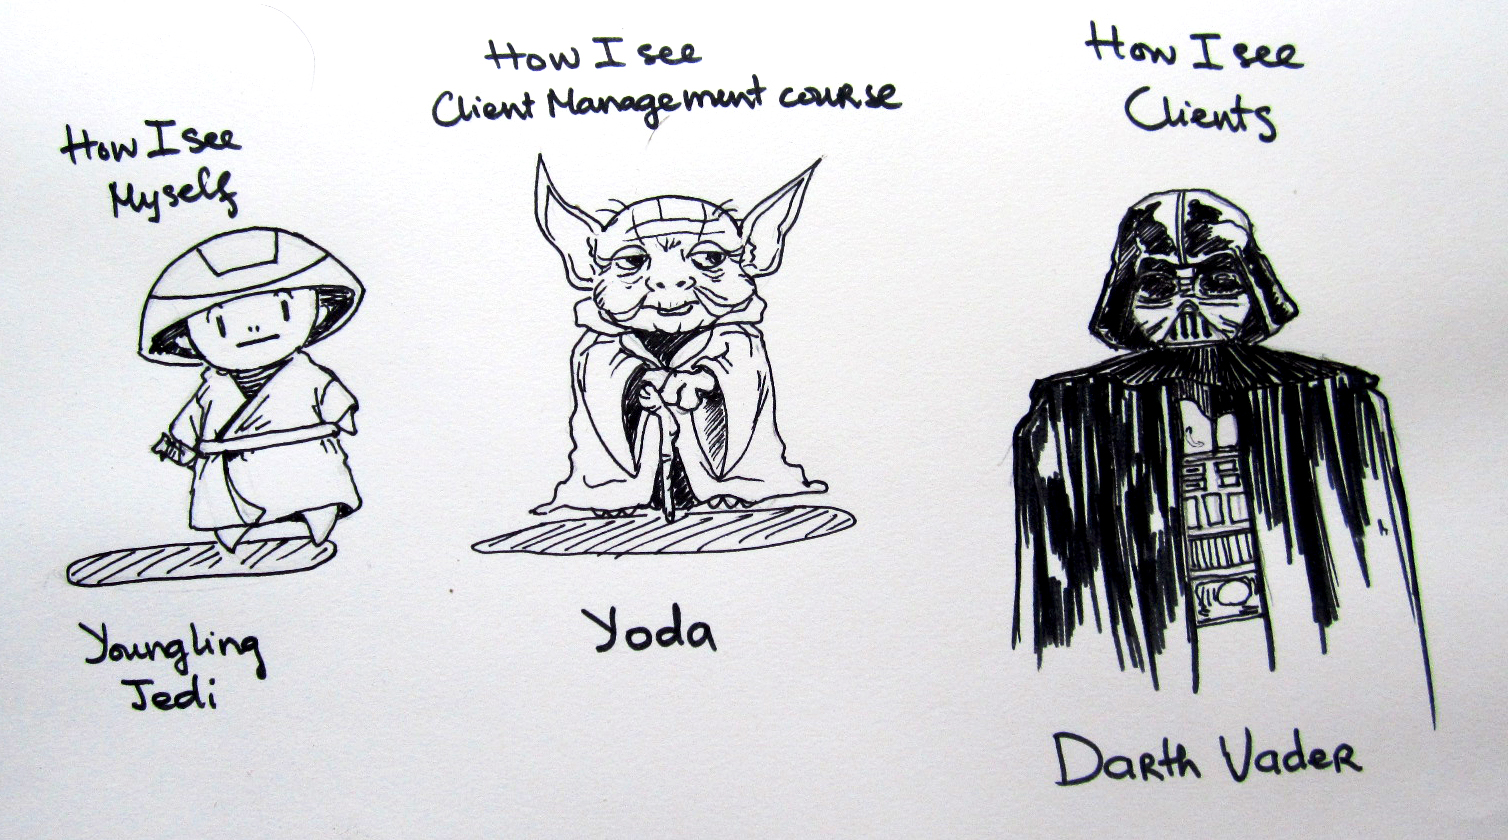 How I see
Myself
Youngling
Jedi
How I see
Client Management course
Yoda
How I see
Clients
Darth Vader